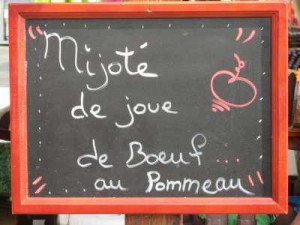 "Mijoté
de joue
de Boeuf ...
au Pommeau"